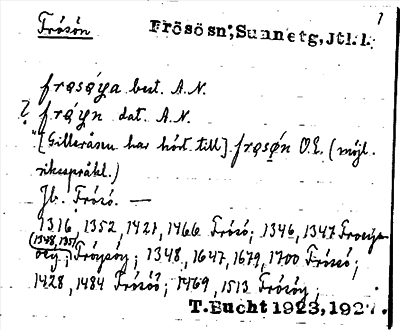 Frösön Frösösn; Sunnetg, Jtl.l. 1
frøsøya best. A.N.
? frøyn dat. A.N.
"[Gilleråsen har hört till] frøsøn O.E. (möjl.
riksspråkl.)
Jb. Frösö. —
1316, 1352, 1421, 1466 Frösö; 1346, 1347
(1348, 1351)
; 1348, 1647, 1679, 1700 Frösö;
1428, 1484 Frösöö; 1469, 1513 Frösöy;
T. Eucht 1923, 1927.